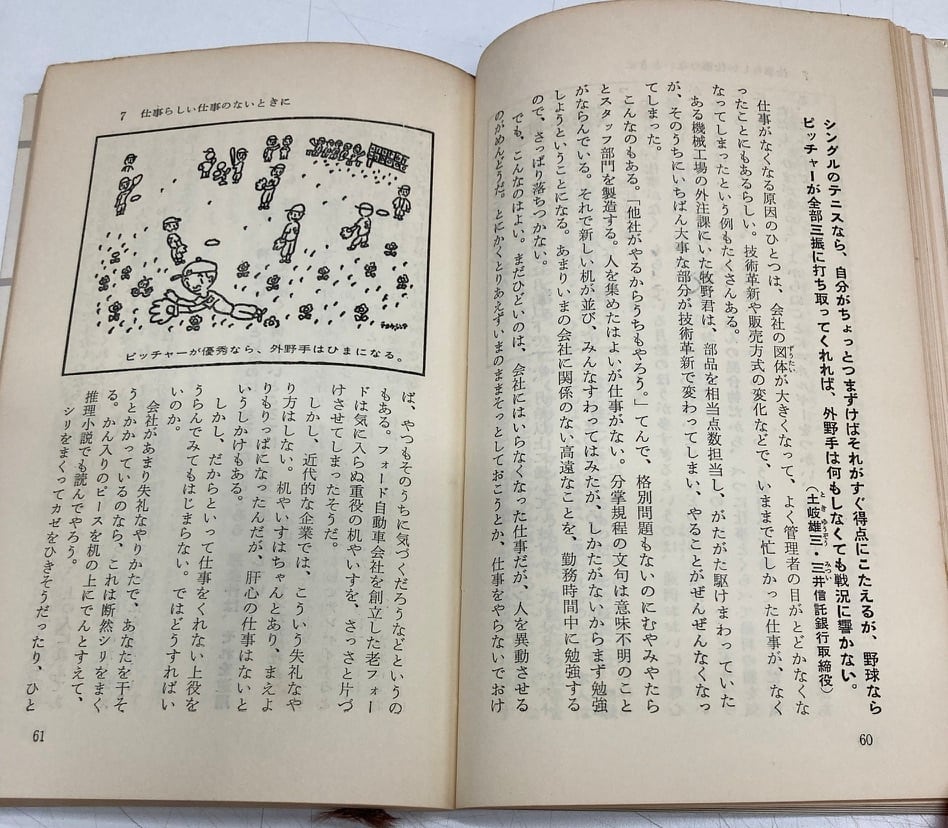 シングルのテニスなら、自分がちょっとつまずけばそれがすぐ得点にこたえるが、野球なら
ピッチャーが全部三振に打ち取ってくれれば、外野手は何もしなくても戦況に響かない。
（土岐雄三・三井信託銀行取締役）
仕事がなくなる原因のひとつは、会社の図体が大きくなって、よく管理者の目がとどかなくな
ったことにもあるらしい。技術革新や販売方式の変化などで、いままで忙しかった仕事が、なく
なってしまったという例もたくさんある。
ある機械工場の外注課にいた牧野君は、部品を相当点数担当し、がたがた駆けまわっていた
が、そのうちにいちばん大事な部分が技術革新で変わってしまい、やることがぜんぜんなくなっ
てしまった。
こんなのもある。「他社がやるからうちもやろう。」てんで、格別問題もないのにむやみやたら
とスタッフ部門を製造する。人を集めたはよいが仕事がない。分掌規程の文句は意味不明のこと
がならんでいる。それで新しい机が並び、みんなすわってはみたが、しかたがないからまず勉強
しようということになる。あまりいまの会社に関係のない高遠なことを、勤務時間中に勉強する
ので、さっぱり落ちつかない。
でも、こんなのはよい。まだひどいのは、会社にはいらなくなった仕事だが、人を異動させる
のがめんどうだ。とにかくとりあえずいまのままそっとしておこうとか、仕事をやらないでおけ
60
7 仕事らしい仕事のないときに
ピッチャーが優秀なら、外野手はひまになる。
ば、やつもそのうちに気づくだろうなどというの
もある。フォード自動車会社を創立した老フォー
ドは気に入らぬ重役の机やいすを、さっさと片づ
けさせてしまったそうだ。
しかし、近代的な企業では、こういう失礼なや
り方はしない。机やいすはちゃんとあり、まえよ
りもりっぱになったんだが、肝心の仕事はないと
いうしかけもある。
しかし、だからといって仕事をくれない上役を
うらんでみてもはじまらない。ではどうすればい
いのか。
会社があまり失礼なやりかたで、あなたを干そ
うとかかっているのなら、これは断然シリをまく
る。かん入りのピースを机の上にでんとすえて、
推理小説でも読んでやろう。
シリをまくってカゼをひきそうだったり、ひと
61